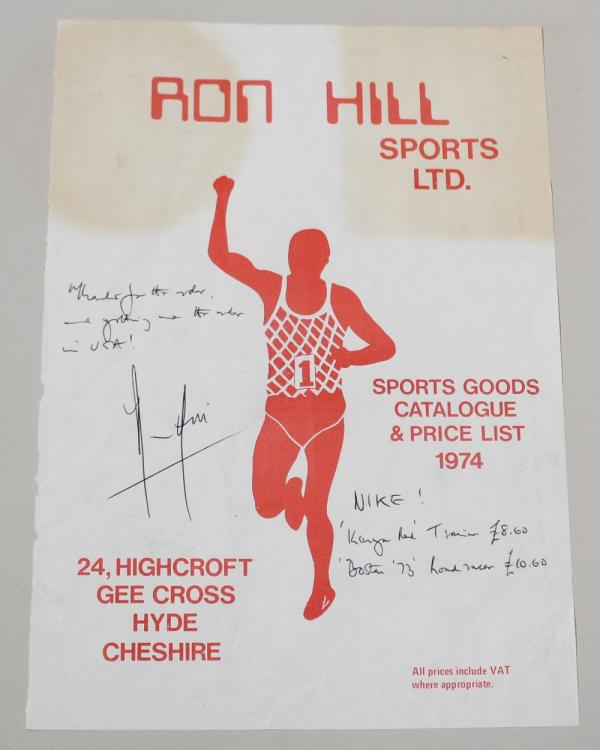 RON HILL
SPORTS
LTD.
Thanks for the order,
the order
in USA!
1
SPORTS GOODS
CATALOGUE
& PRICE LIST
1974
NIKE!
'Kenya Red' Trainer £8.60
'Boston '73' Road racer £10.60
24, HIGHCROFT
GEE CROSS
HYDE
CHESHIRE
All prices include VAT
where appropriate.